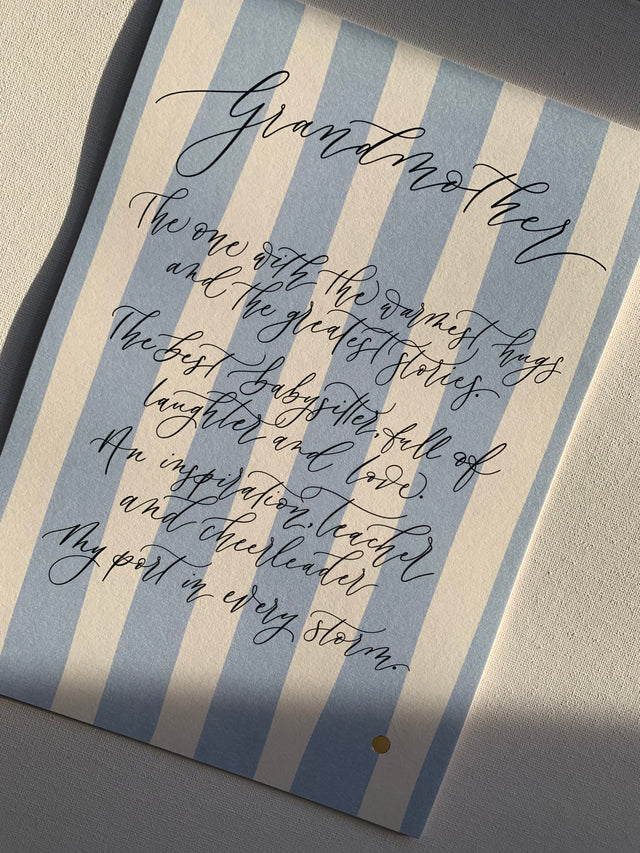 Grandmother
The one with the warmest hugs
and the greatest stories.
The best babysitter, full of
laughter and love.
An inspiration, teacher
and cheerleader
My port in every storm.